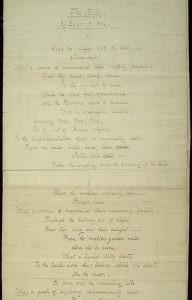 The Bells.
By Edgar A. Poe.
1.
Hear the sledges with the bells —
Silver bells!
What a world of merriment their melody foretells!
How they tinkle, tinkle, tinkle,
In the icy air of night!
While the stars that oversprinkle
All the Heavens seem to twinkle
With a crystalline delight;
Keeping time, time, time,
In a sort of Runic rhyme,
To the tintinnabulation that so musically wells
From the bells, bells, bells, bells,
Bells, bells, bells —
From the jingling and the tinkling of the bells.
2
Hear the mellow wedding bells —
Golden bells!
What a world of happiness their harmony foretells!
Through the balmy air of night
How they ring out their delight! —
From the molten-golden notes
And all in tune,
What a liquid ditty floats
To the turtle-dove that listens while she gloats
On the moon!
Oh, from out the sounding cells
What a gush of euphony voluminously wells!